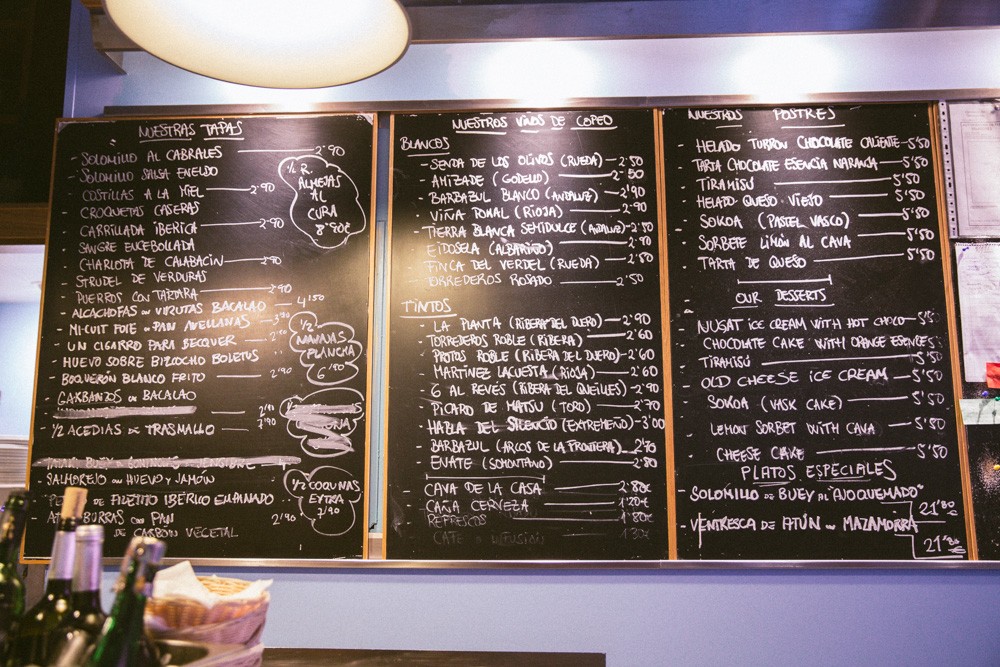 NUESTRAS TAPAS
- SOLOMILLO AL CABRALES 2'90
- SOLOMILLO SALSA ENELDO
- COSTILLAS A LA MIEL 2'90
- CROQUETAS CASERAS
- CARRILLADA IBERICA 2'90
- SANGRE ENCEBOLLADA
- CHARLOTA DE CALABACIN 2'90
- STRUDEL DE VERDURAS
- PUERROS CON TARTARA 2'90
- ALCACHOFAS VIRUTAS BACALAO 4'50
- MI-CUIT FOIE PAN AVELLANAS
- UN CIGARRO PARA BECQUER
- HUEVO SOBRE BIZCOCHO BOLETUS
- BOQUERÓN BLANCO FRITO 2'90
- GARBANZOS BACALAO
- 1/2 ACEDIAS DE TRASMALLO 7'90
SALMOREJO HUEVO Y JAMÓN
DE FILETITO IBÉRICO EMPANADO
PAN 2'90
DE CARBON VEGETAL
1/2 R.
ALMEJAS
AL
CURA
8'90€
1/2
NAVAJAS
PLANCHA
6'50
1/2 COQUINAS
EXTRA
7'90
NUESTROS VINOS DE COPEO
BLANCOS
- SENDA DE LOS OLIVOS (RUEDA) 2'50
- AMIZADE (GODELLO) 2'50
- BARBAZUL BLANCO (ANDALUZ) 2'90
- VIÑA POMAL (RIOJA) 2'90
- TIERRA BLANCA SEMIDULCE (ANDALUZ) 2'50
- EIDOSELA (ALBARIÑO) 2'90
- FINCA DEL VERDEL (RUEDA) 2'80
- TORREDEROS ROSADO 2'50
TINTOS
- LA PLANTA (RIBERA DEL DUERO) 2'90
- TORREDEROS ROBLE (RIBERA) 2'60
- PROTOS ROBLE (RIBERA DEL DUERO) 2'60
- MARTÍNEZ LACUESTA (RIOJA) 2'60
- 6 AL REVÉS (RIBERA DEL QUEILES) 2'90
- PICARO DE MATSU (TORO) 2'70
- HABLA DEL SILENCIO (EXTREMEÑO) 3'00
- BARBAZUL (ARCOS DE LA FRONTERA) 2'75
- ENATE (SOMONTANO) 2'80
- CAVA DE LA CASA 2'80€
- CAÑA CERVEZA 1'20€
- REFRESCOS 1'80€
- CAFE INFUSIÓN 1'30€
NUESTROS POSTRES
- HELADO TURRÓN CHOCOLATE CALIENTE 5'50
- TARTA CHOCOLATE ESENCIA NARANJA 5'50
- TIRAMISÚ 5'50
- HELADO QUESO VIEJO 5'50
- SOKOA (PASTEL VASCO) 5'50
- SORBETE LIMÓN AL CAVA 5'50
- TARTA DE QUESO 5'50
OUR DESSERTS
- NUGAT ICE CREAM WITH HOT CHOCO 5'50
- CHOCOLATE CAKE WITH ORANGE ESENCES
- TIRAMISÚ 5'50
- OLD CHEESE ICE CREAM 5'50
- SOKOA (VASK CAKE) 5'50
- LEMON SORBET WITH CAVA 5'50
- CHEESE CAKE 5'50
PLATOS ESPECIALES
- SOLOMILLO DE BUEY AL "AJOQUEMADO" 21'80€
- VENTRESCA DE ATÚN MAZAMORRA 21'80€